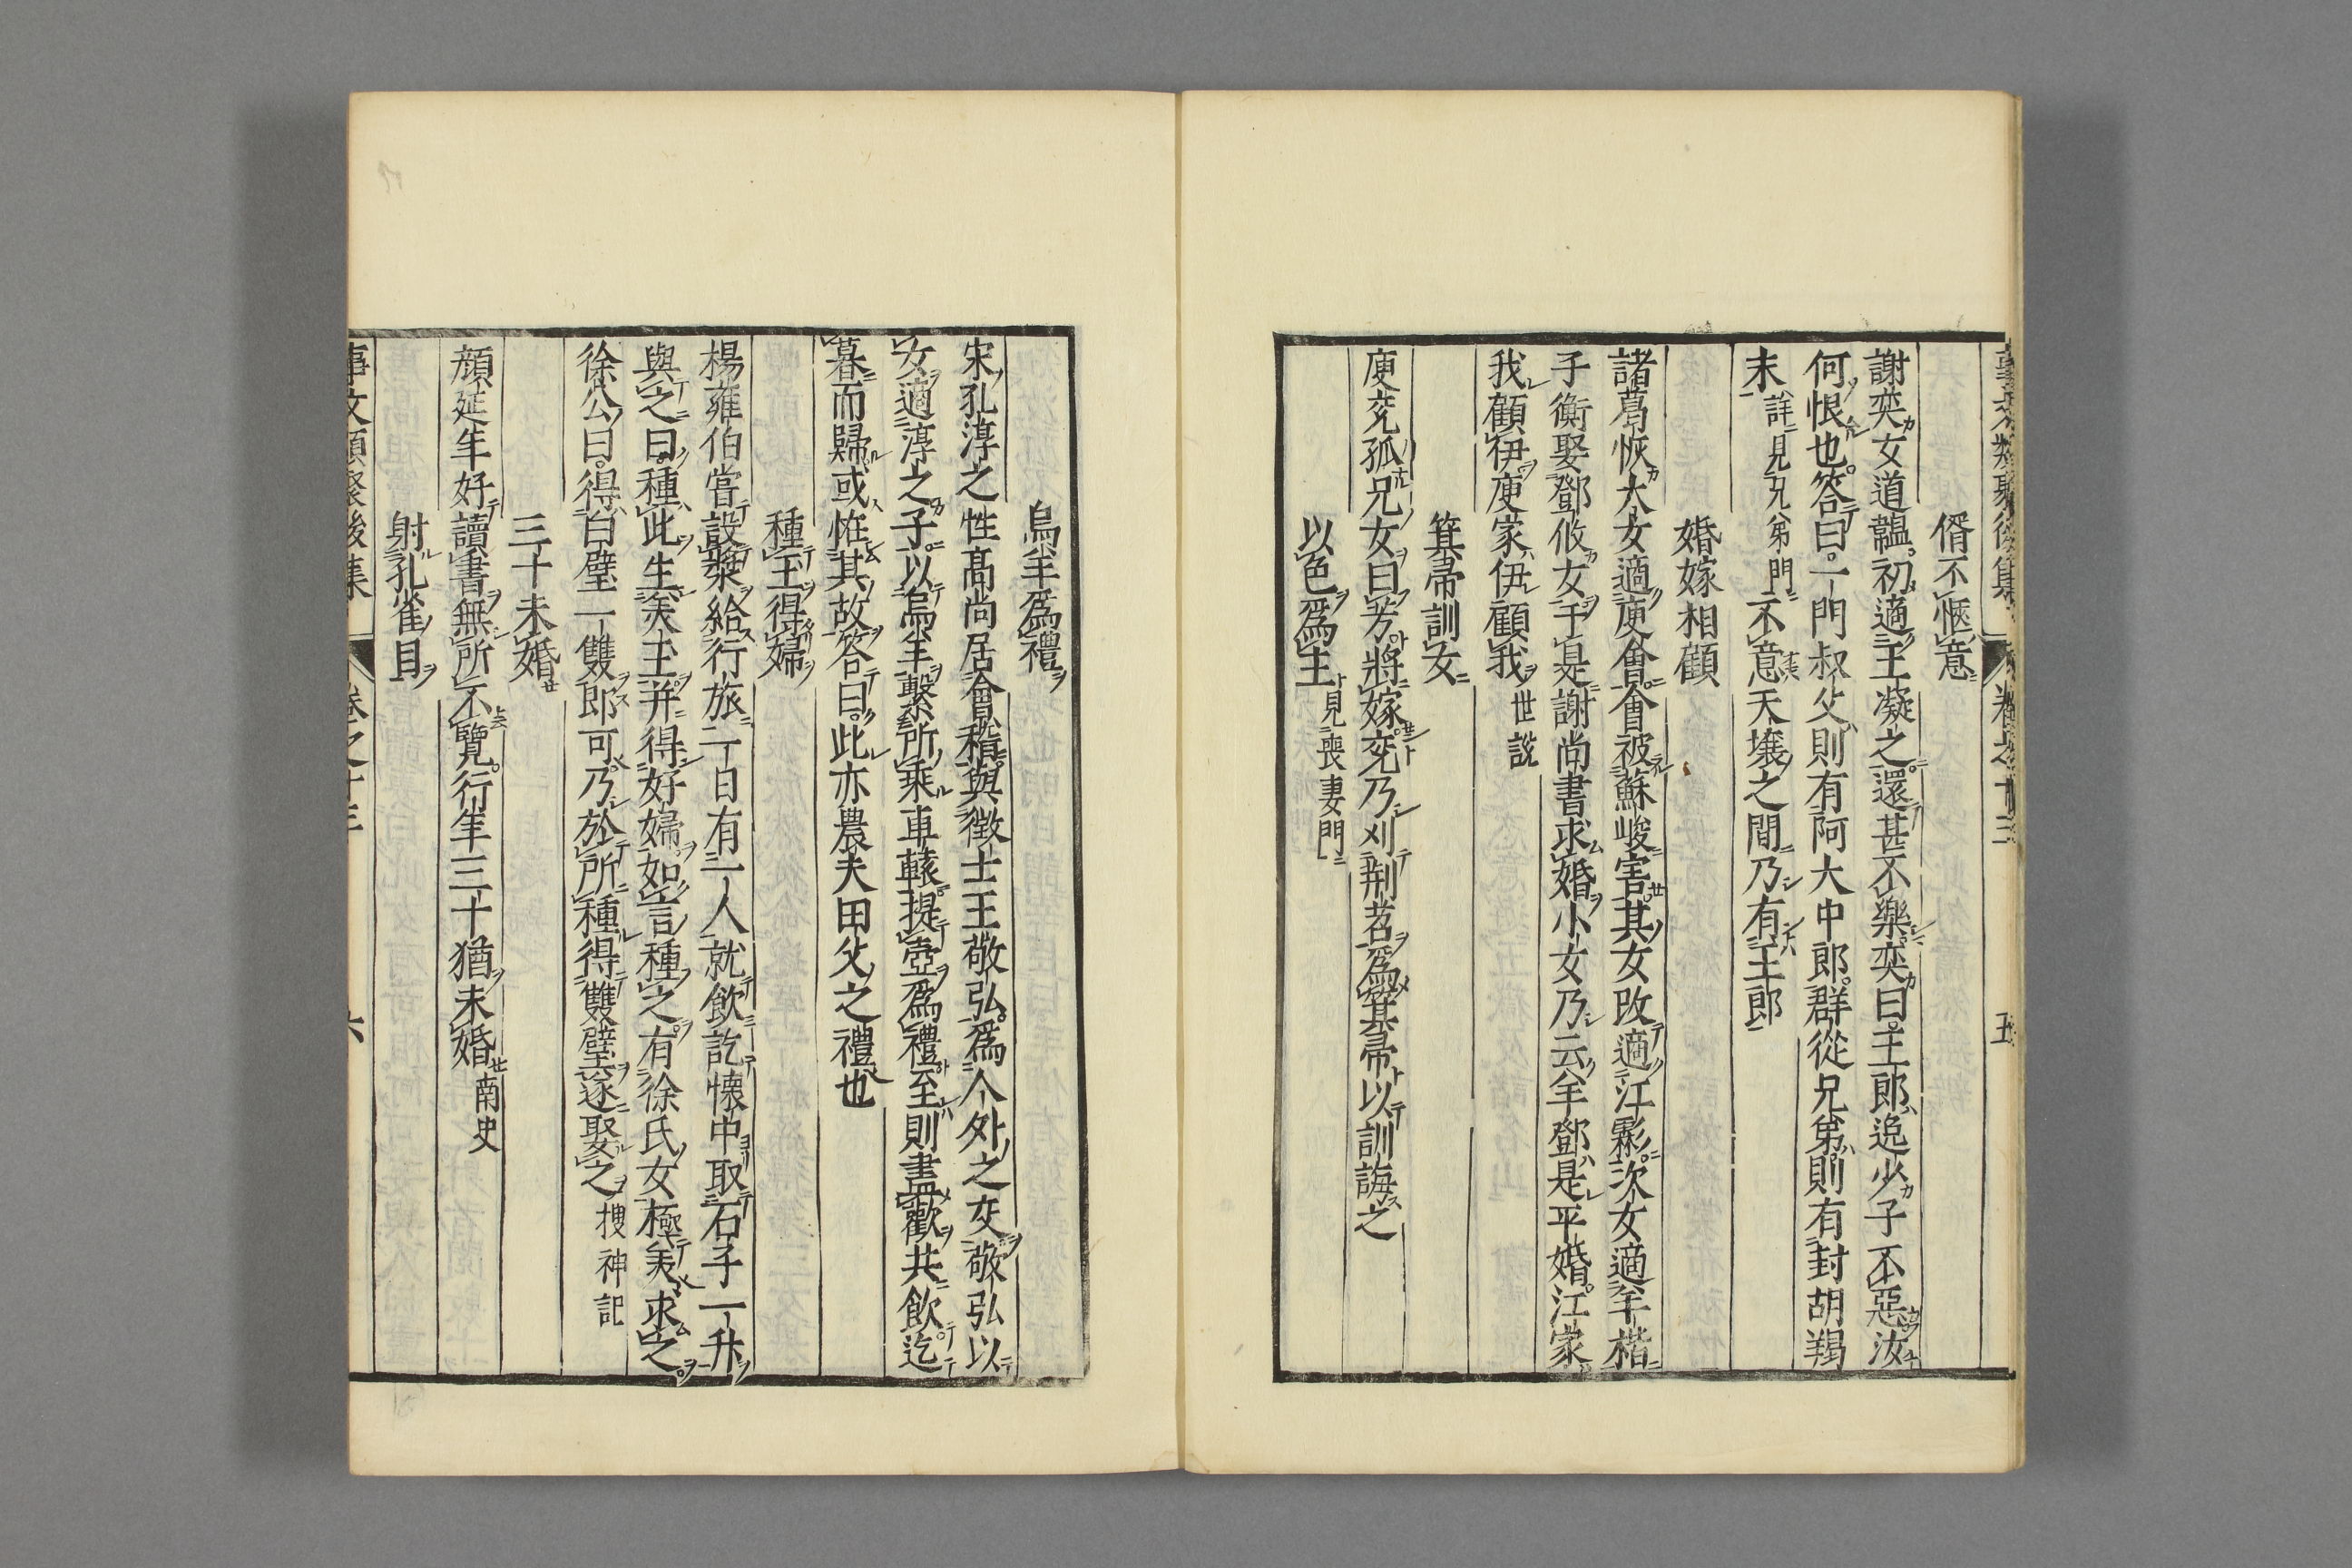 事文類聚後集 卷之十三 五
偦不愜意
謝奕女道韞初適王凝之還甚不樂奕曰王郎逸少子不惡汝
何恨也答曰一門叔父則有阿大中郎群從兄弟則有封胡羯
末詳見兄弟門不意天壤之間乃有王郎
婚嫁相顧
諸葛恢大女適庾會會被蘇峻害其女改適江虨次女適羊楷
子衡娶鄧攸女于是謝尚書求婚小女乃云羊鄧是平婚江家
我顧伊庾家伊顧我世說
箕帚訓女
庾兗孤兄女曰芳將嫁兗乃刈荆苕爲箕帚以訓誨之
以色爲主見喪妻門
烏羊爲禮
宋孔淳之性髙尚居會稽與徵士王敬弘爲人外之交敬弘以
女適淳之子以烏羊繫所乘車轅提壺爲禮至則盡歡共飲迄
暮而歸或恠其故答曰此亦農夫田父之禮也
種玉得婦
楊雍伯嘗設漿給行旅一日有一人就飲訖懷中取石子一升
與之曰種此生美玉并得好婦如言種之有徐氏女極美求之
徐公曰得白璧一雙郎可乃於所種得雙璧遂娶之搜神記
三十未婚
顔延年好讀書無所不覽行年三十猶未婚南史
射孔雀目
事文類聚後集 卷之十三 六